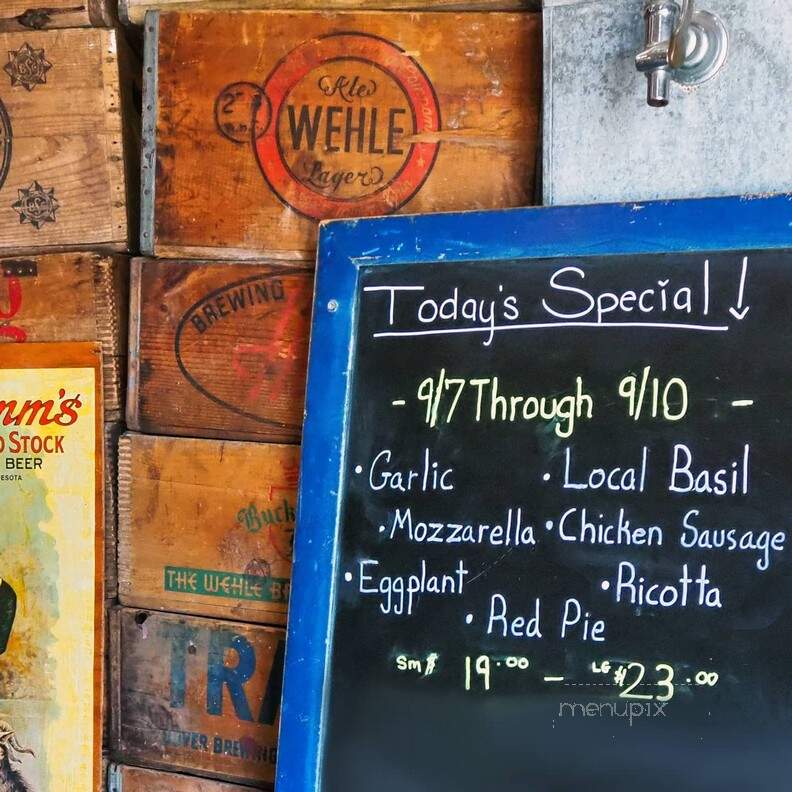 Ale
WEHLE
Lager
2
BREWING
mm's
STOCK
BEER
THE WEHLE
Today's Special!
- 9/7 Through 9/10 -
• Garlic • Local Basil
• Mozzarella • Chicken Sausage
• Eggplant • Ricotta
• Red Pie
Sm $ 19.00 - LG $23.00
menupix